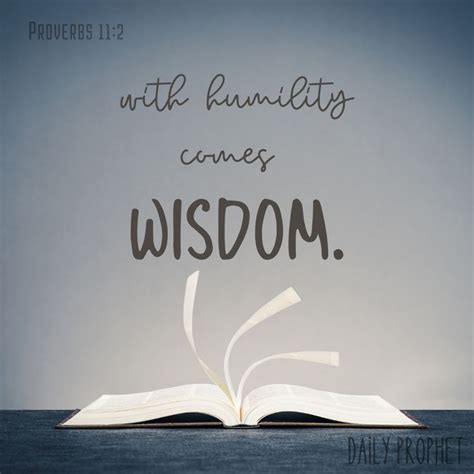 PROVERBS 11:2
with humility
comes
WISDOM.
DAILY PROPHET